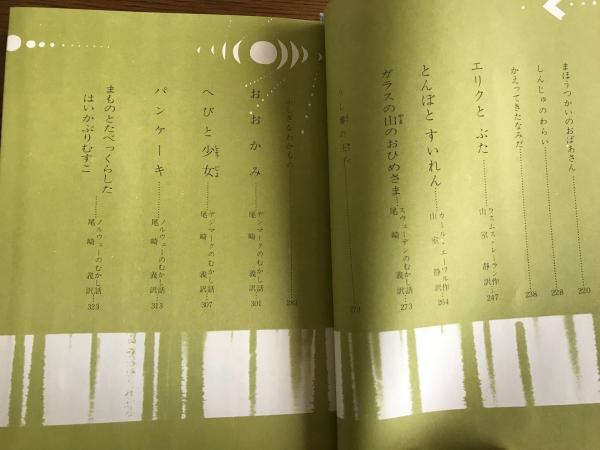 まほうつかいのおばあさん……220
しんじゅのわらい……228
かえってきたなみだ……238
エリクと ぶた……ラスムス・レーラン作 山室 静訳…247
とんぼと すいれん……カール・エーワル作 山室 静訳…264
ガラスの山のおひめさま……スウェーデンのむかし話 尾崎 義訳…273
ふしぎなわかもの……
おおかみ……デンマークのむかし話 尾崎 義訳…301
へびと少女……デンマークのむかし話 尾崎 義訳…307
パンケーキ……ノルウェーのむかし話 尾崎 義訳…313
まものとたべっくらした
はいかぶりむすこ……ノルウェーのむかし話 尾崎 義訳…323